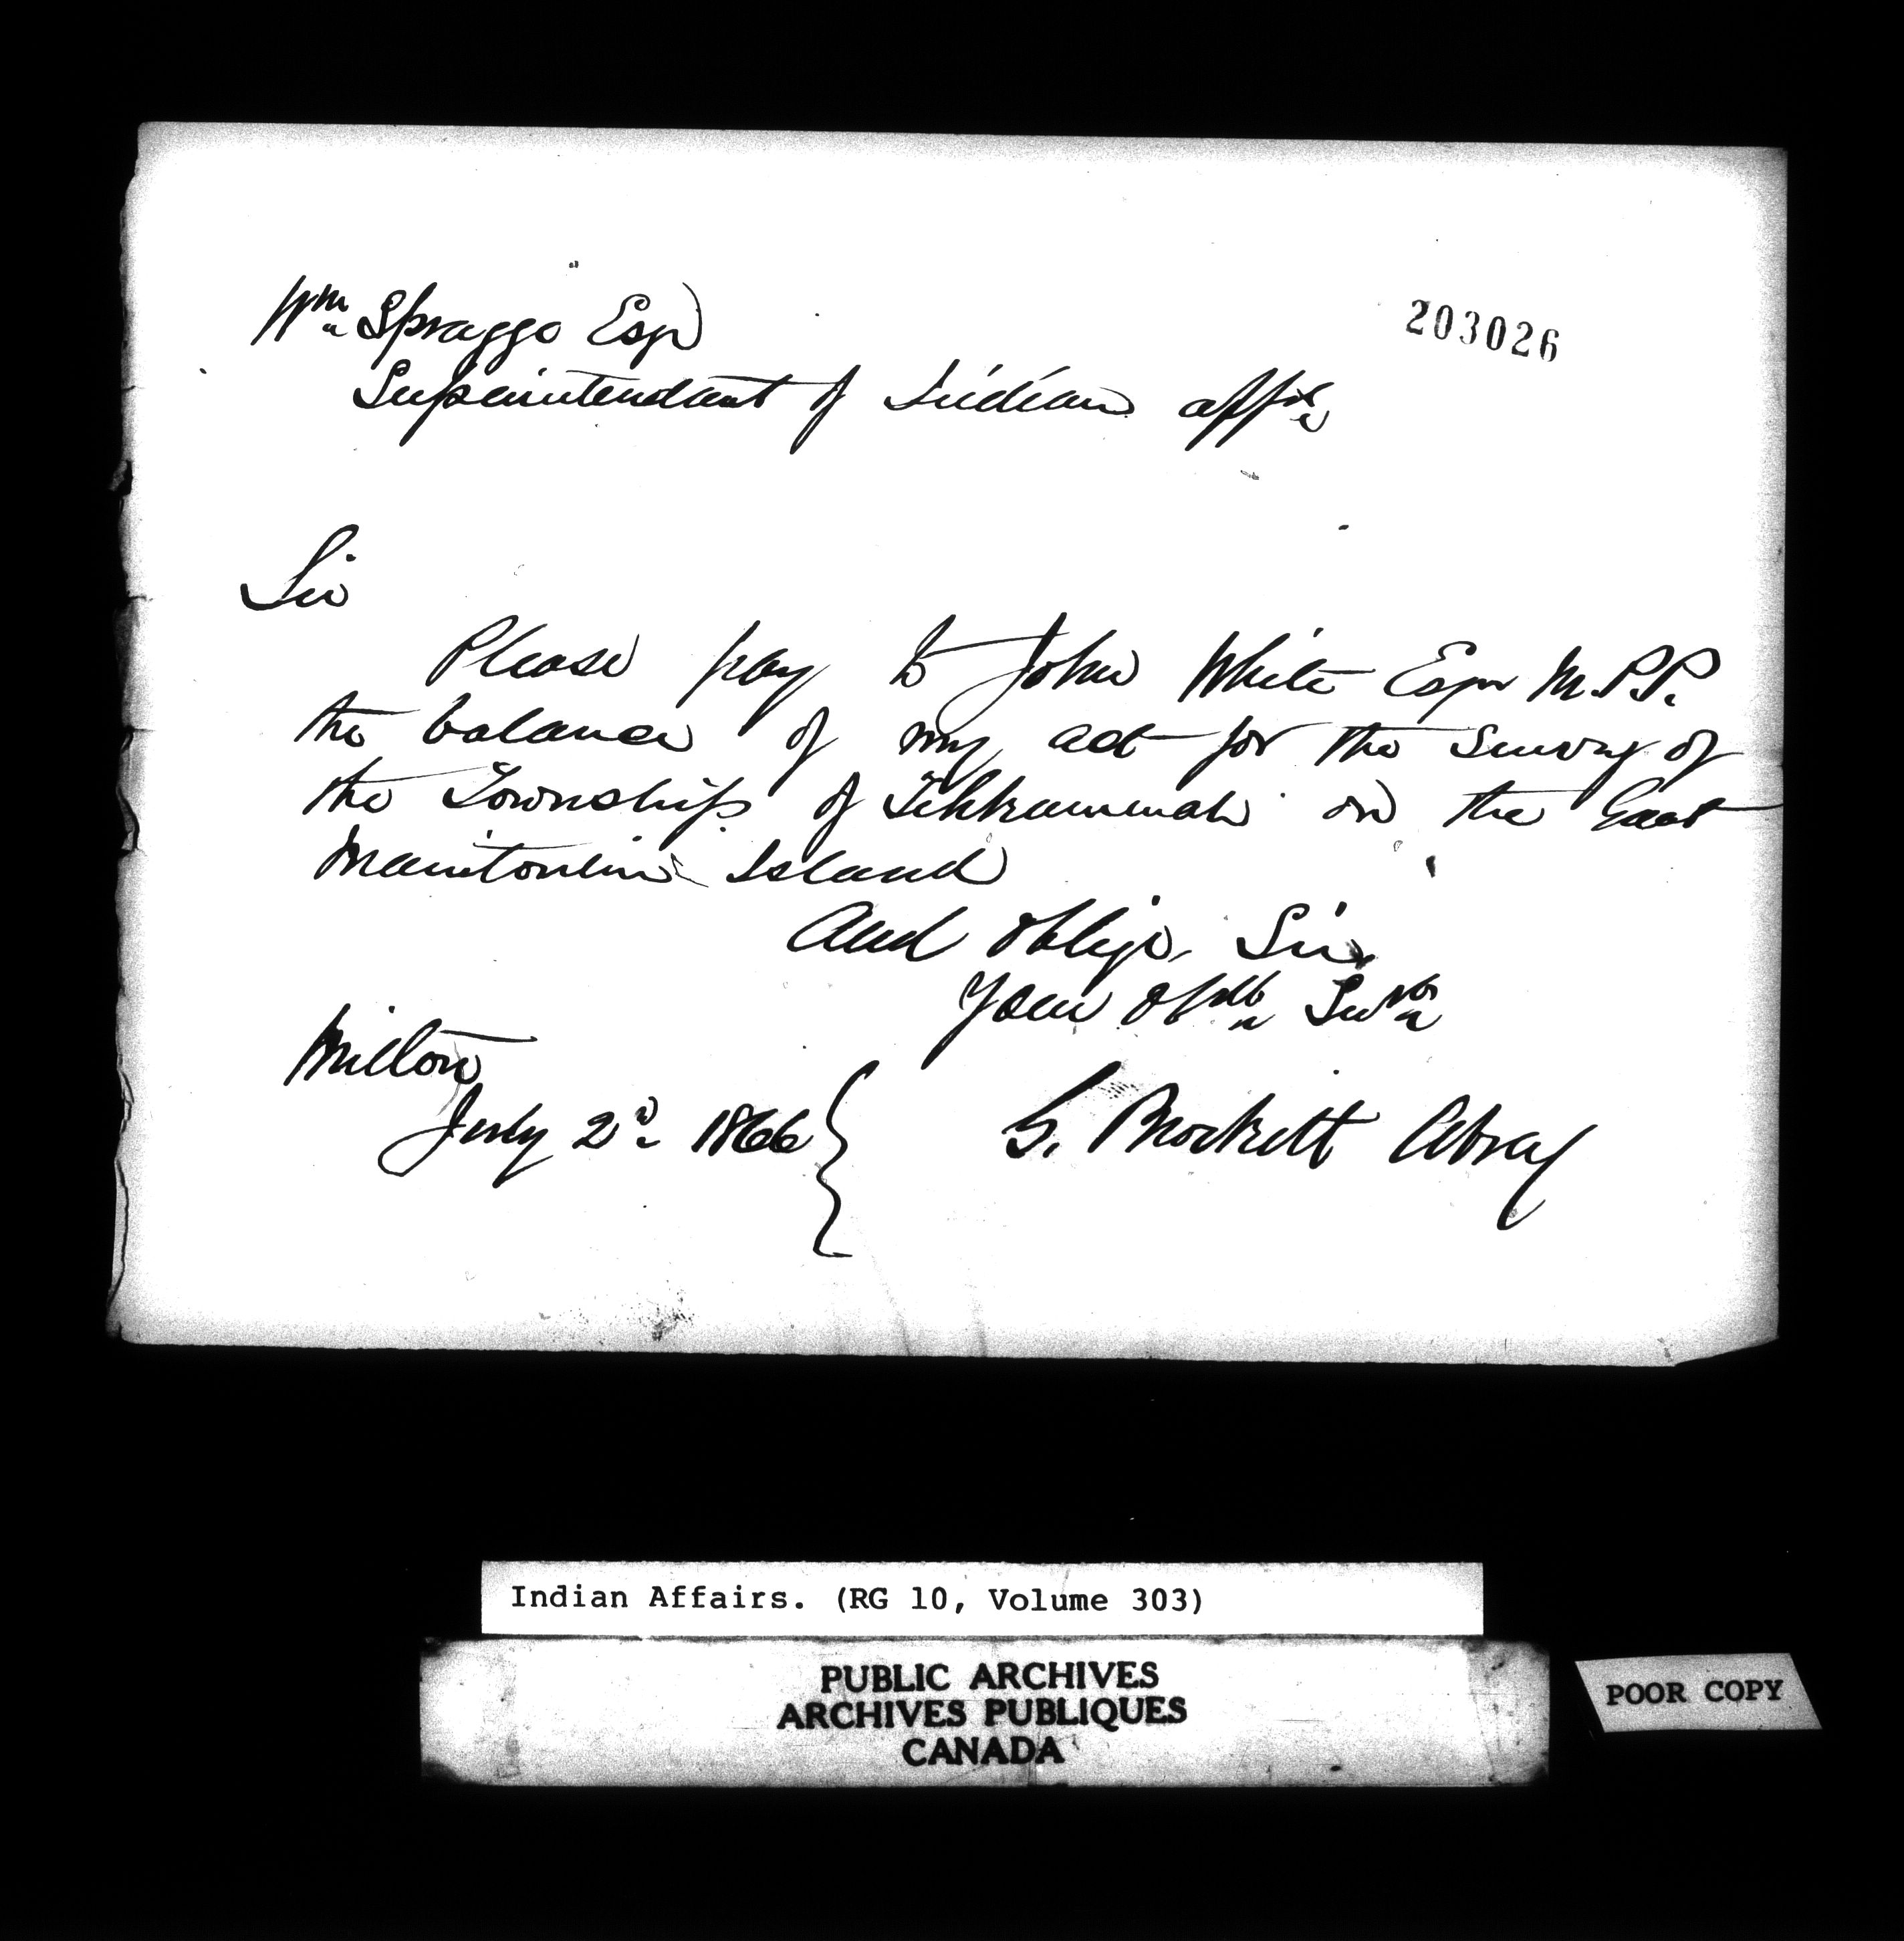 Wm Spragge Esqr
203026
Superintendant of Indian affrs
Sir
Please pay to John White Esqr M.P.P.
the balance of my act for the Survey of
the Township of Tehkummah on the Great
Manitoulin Island
And oblige, Sir,
Your Obdt Servt
Milton
July 2d 1866
G. Brockitt Abrey
Indian Affairs. (RG 10, Volume 303)
PUBLIC ARCHIVES
ARCHIVES PUBLIQUES
CANADA
POOR COPY